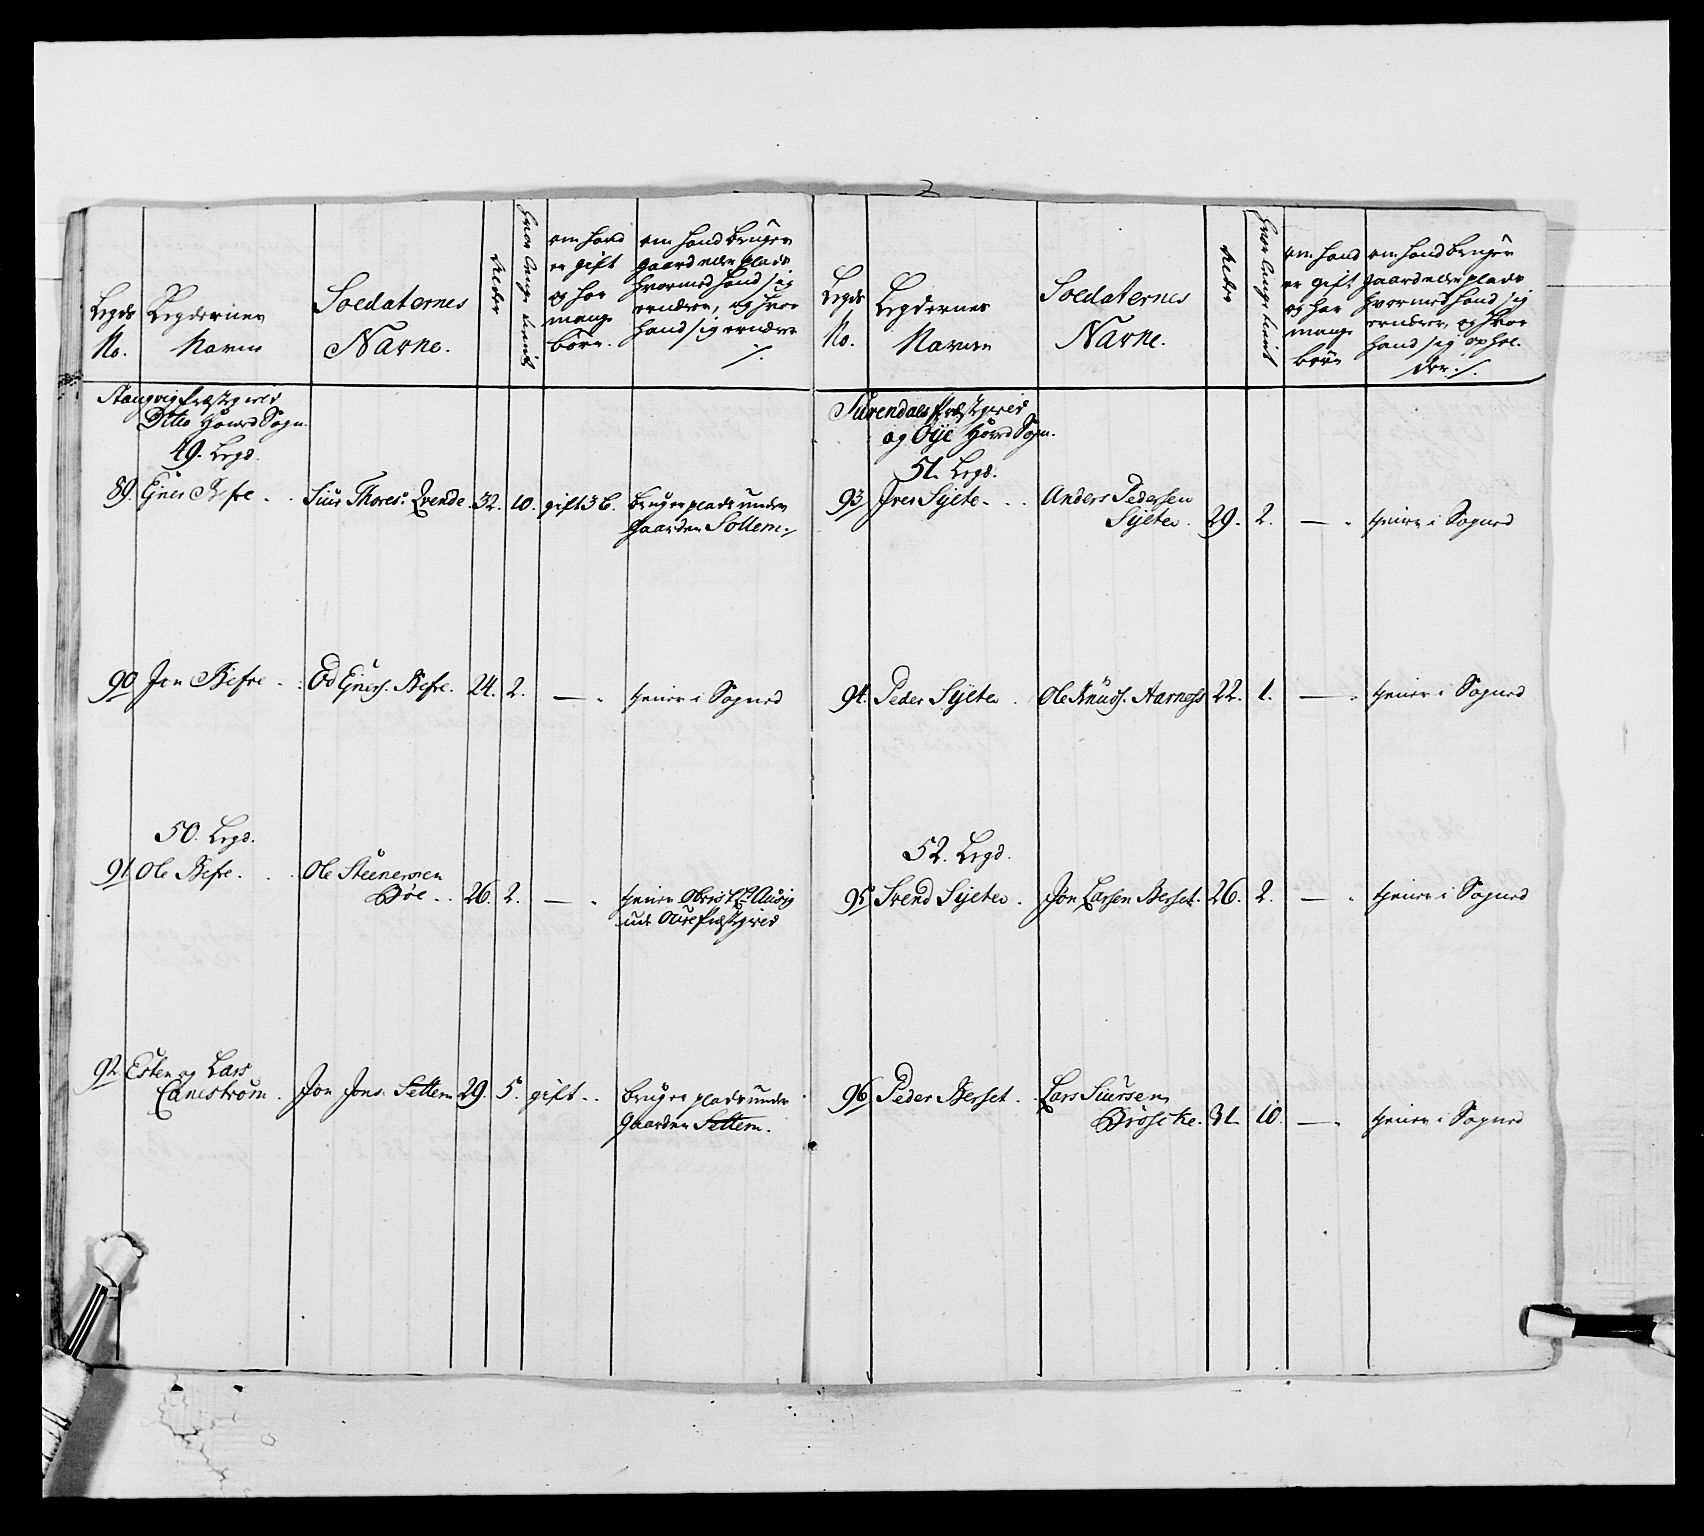 Legds
No.
Legdernes
Navne
Soldaternes
Navne.
Alder
hvor længe tient
om hand
er gift
og har
mange
børn.
om hand bruger
gaard eller plads
hvormed hand sig
ernærer, og hvor
hand sig ernærer
Stangvig Præstegield
Ditto Hoved Sogn.
49. Legd.
89. Ejner Befre. Siur Thores: Qvende. 32. 10. gift 3 b. bruger plads under
Gaarden Sollem
90 Jon Befre. Od Ejners. Befre. 24. 2. — tiener i Sogned
50. Legd.
91 Ole Befre. Ole Steenersen
Bøe. 26. 2. — tiener Obrist
udi Oure Præstegield
92 Esten og Lars
Canestrøm. Jon Jons. Settem 29. 5. gift. bruger plads under
Gaarden Settem.
Legds
No.
Legdernes
Navne
Soldaternes
Navne.
Alder
hvor længe tient
om hand
er gift
og har
mange
børn
om hand bruger
gaard eller plads
hvormed hand sig
ernærer, og hvor
hand sig ophol-
der
Surendals Præstegield
og Øye Hoved Sogn.
51. Legd.
93 Iver Sylte. Anders Pedersen
Sylte. 29. 2. — tiener i Sogned
94. Peder Sylte. Ole Knuds. Aarness 22. 1. — tiener i Sogned
52. Legd.
95 Svend Sylte. Jon Larsen Berset. 26. 2. — tiener i Sogned
96 Peder Berset. Lars Siursen
Brøske. 31. 10. — tiener i Sogned